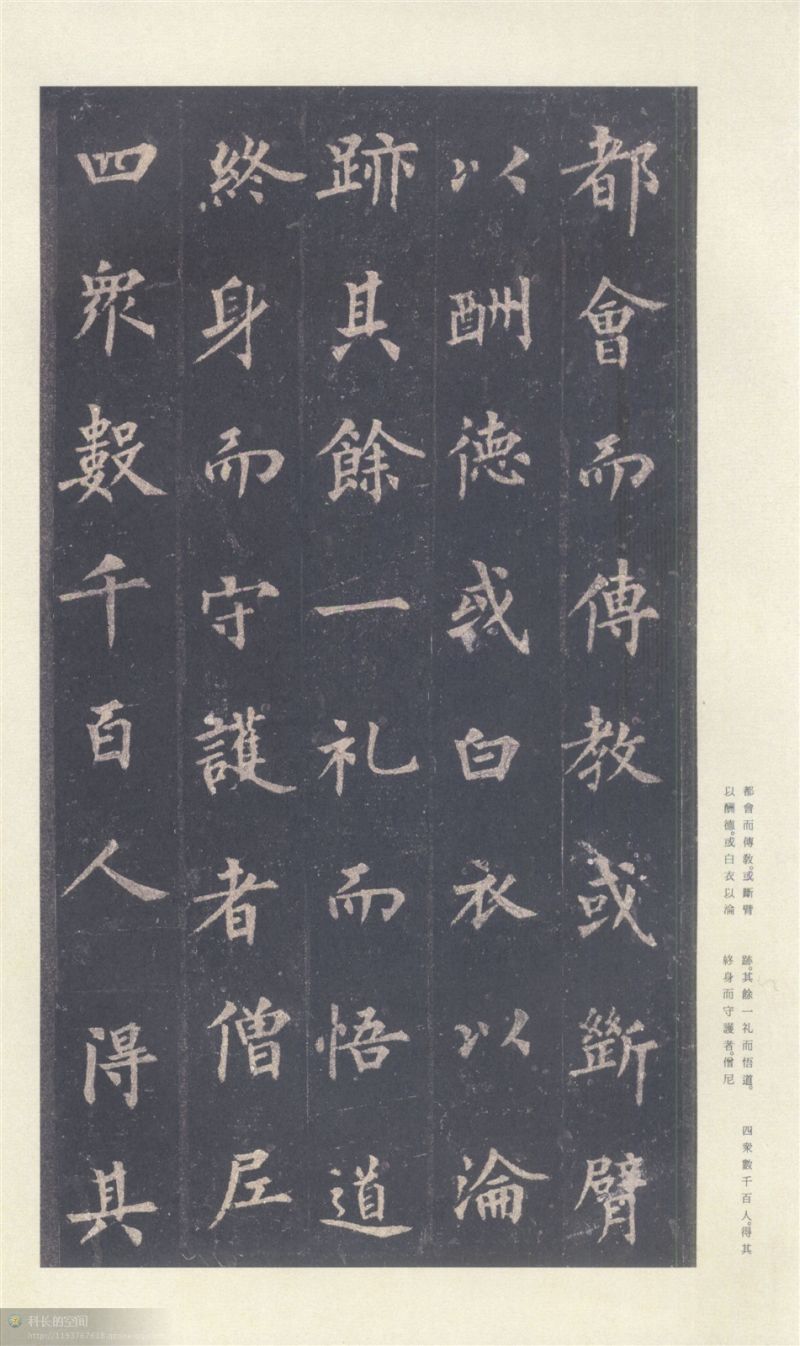 都會而傳教或斷臂
以酬德或白衣以淪
跡其餘一礼而悟道
終身而守護者僧尼
四衆數千百人得其
都會而傳教。或斷臂
以酬德。或白衣以淪
跡。其餘一礼而悟道。
終身而守護者。僧尼
四衆數千百人。得其
科长的空间